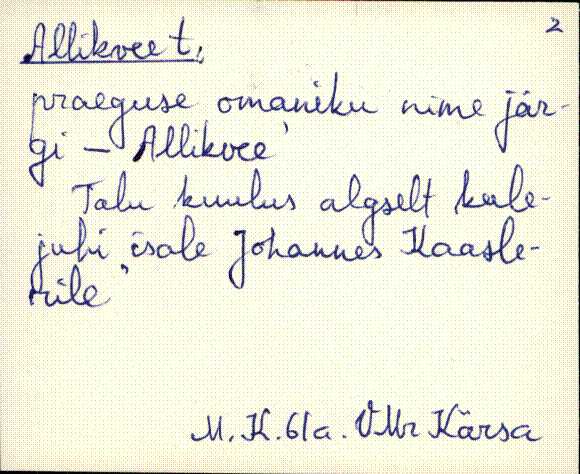 2
Allikvee t.
praeguse omaniku nime jär-
gi – Allikvee'
Talu kuulus algselt keele-
juhi isale Johannes Kaasle-
rile"
M. K. 61a. VMr Kärsa